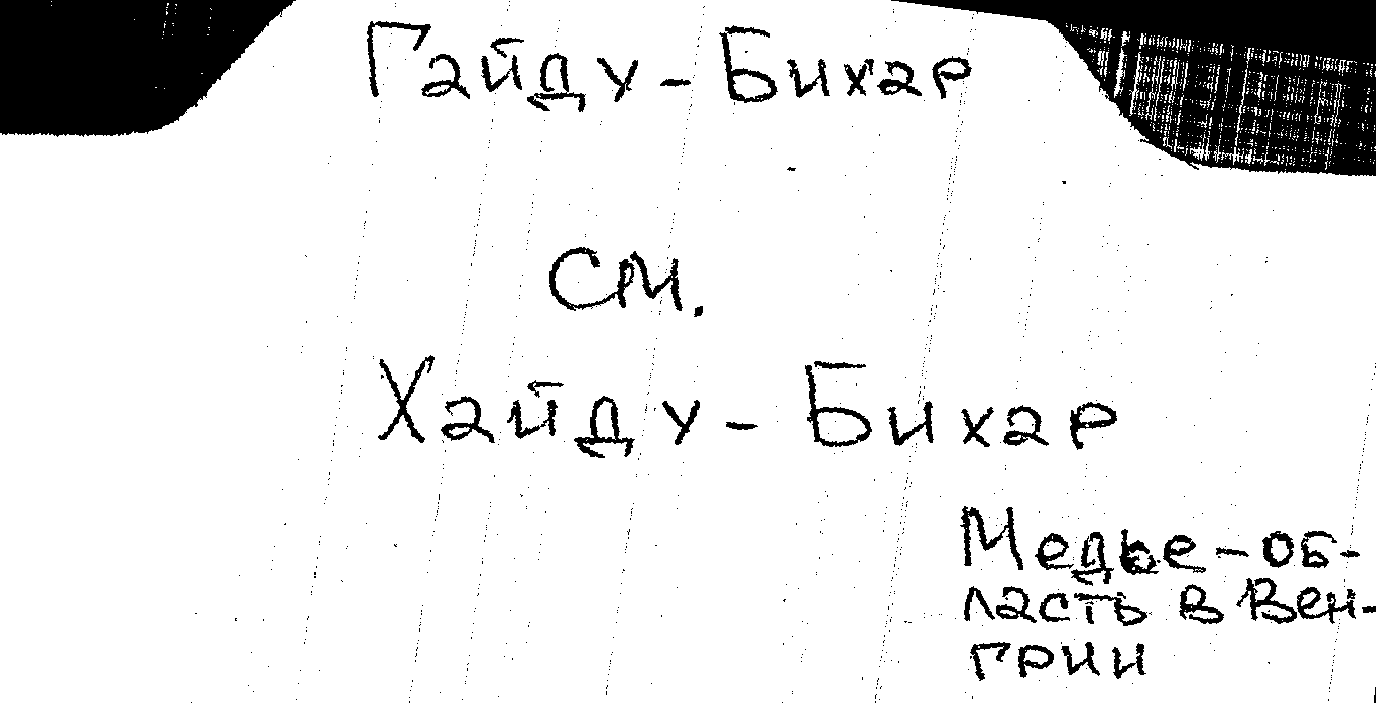 Гайду-Бихар
см.
Хайду-Бихар
Медье-об-
ласть в Вен-
грии